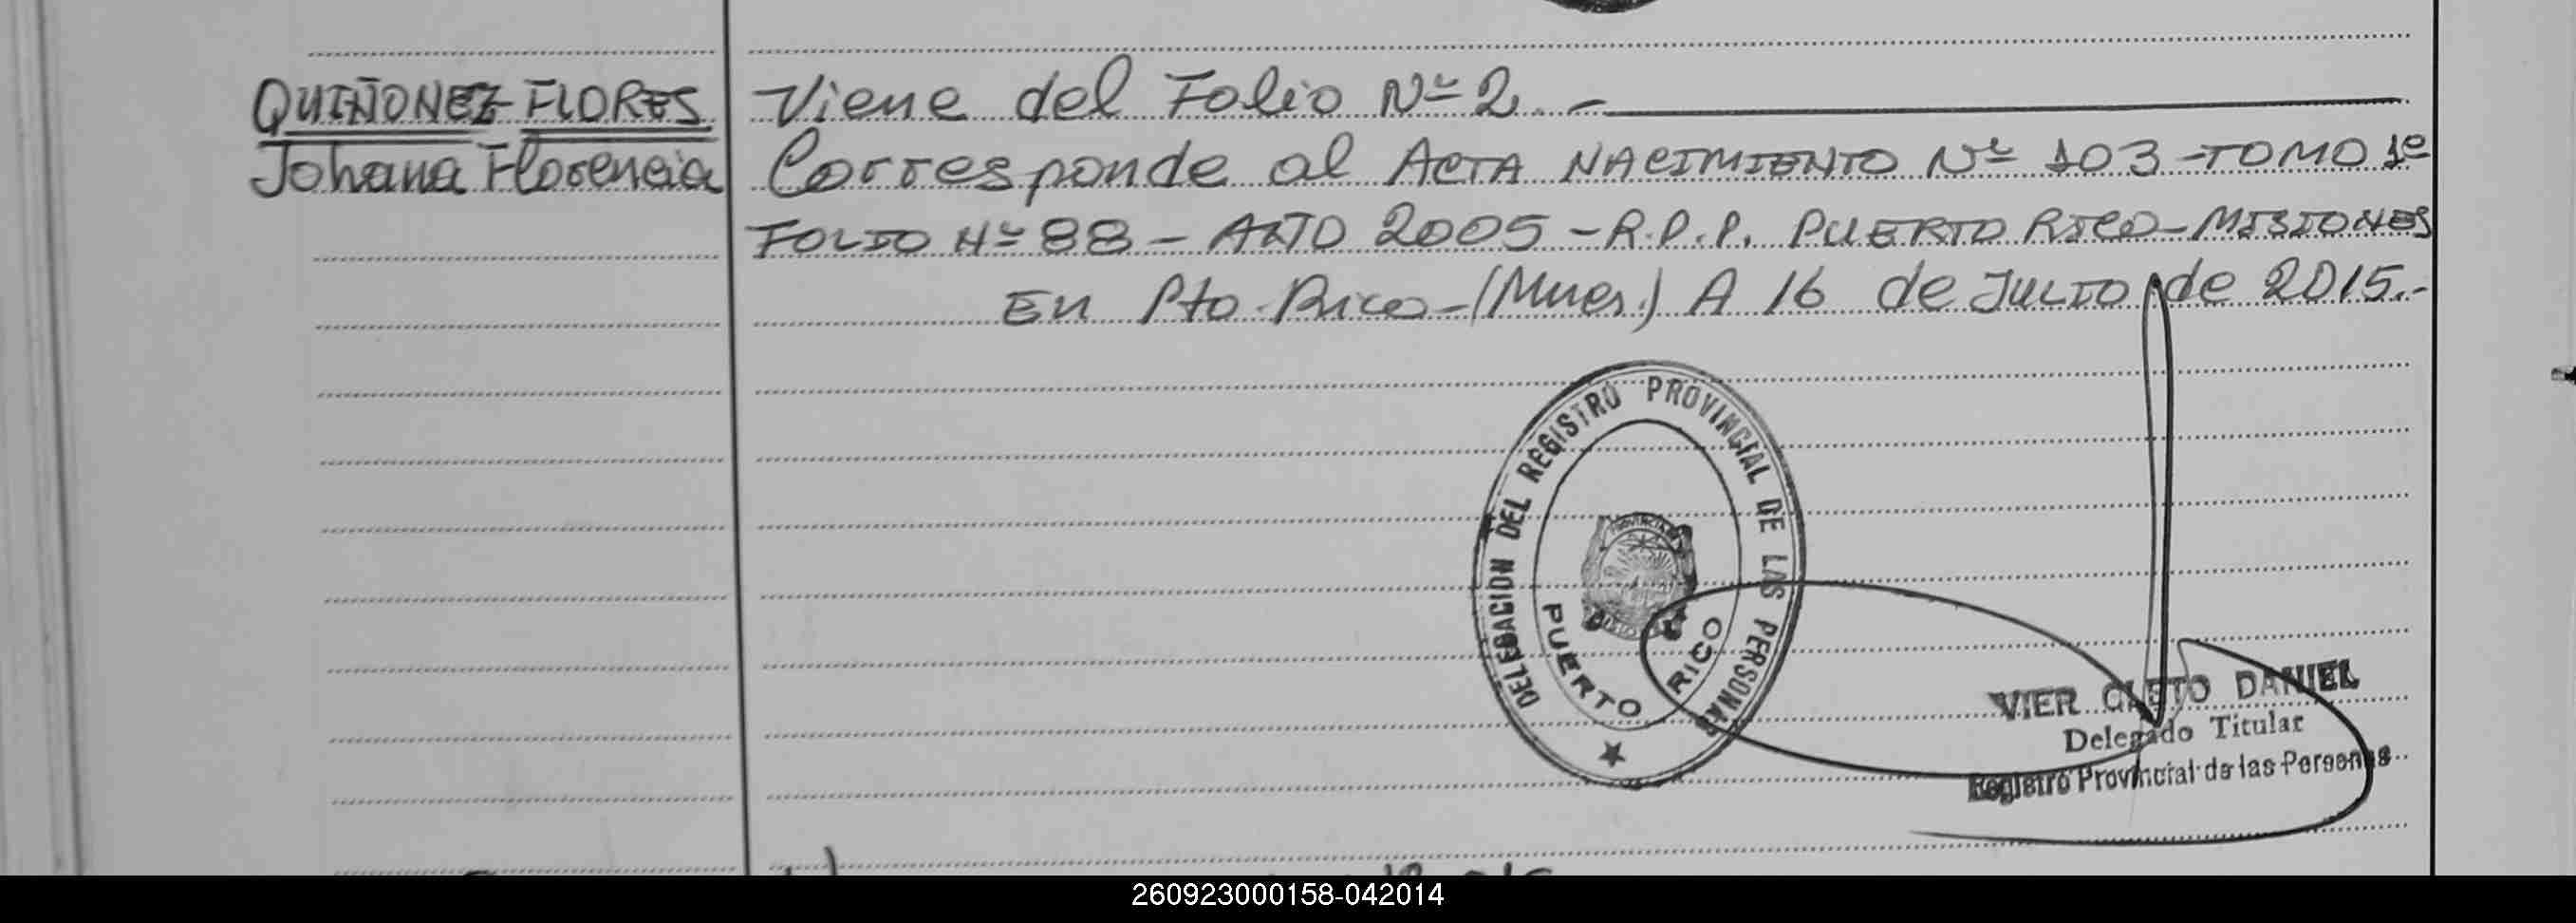 QUIÑONEZ FLORES
Johana Florencia
Viene del Folio Nº 2.-
Corresponde al ACTA NACIMIENTO Nº 103-TOMO 1º
FOLIO Nº 88 - AÑO 2005 - R.P.P. PUERTO RICO-MISIONES
En Pto. Rico-(Mnes.) A 16 de JULIO de 2015.-
DELEGACION DEL REGISTRO PROVINCIAL DE LAS PERSONAS
PUERTO RICO
VIER CLETO DANIEL
Delegado Titular
Registro Provincial de las Personas
260923000158-042014